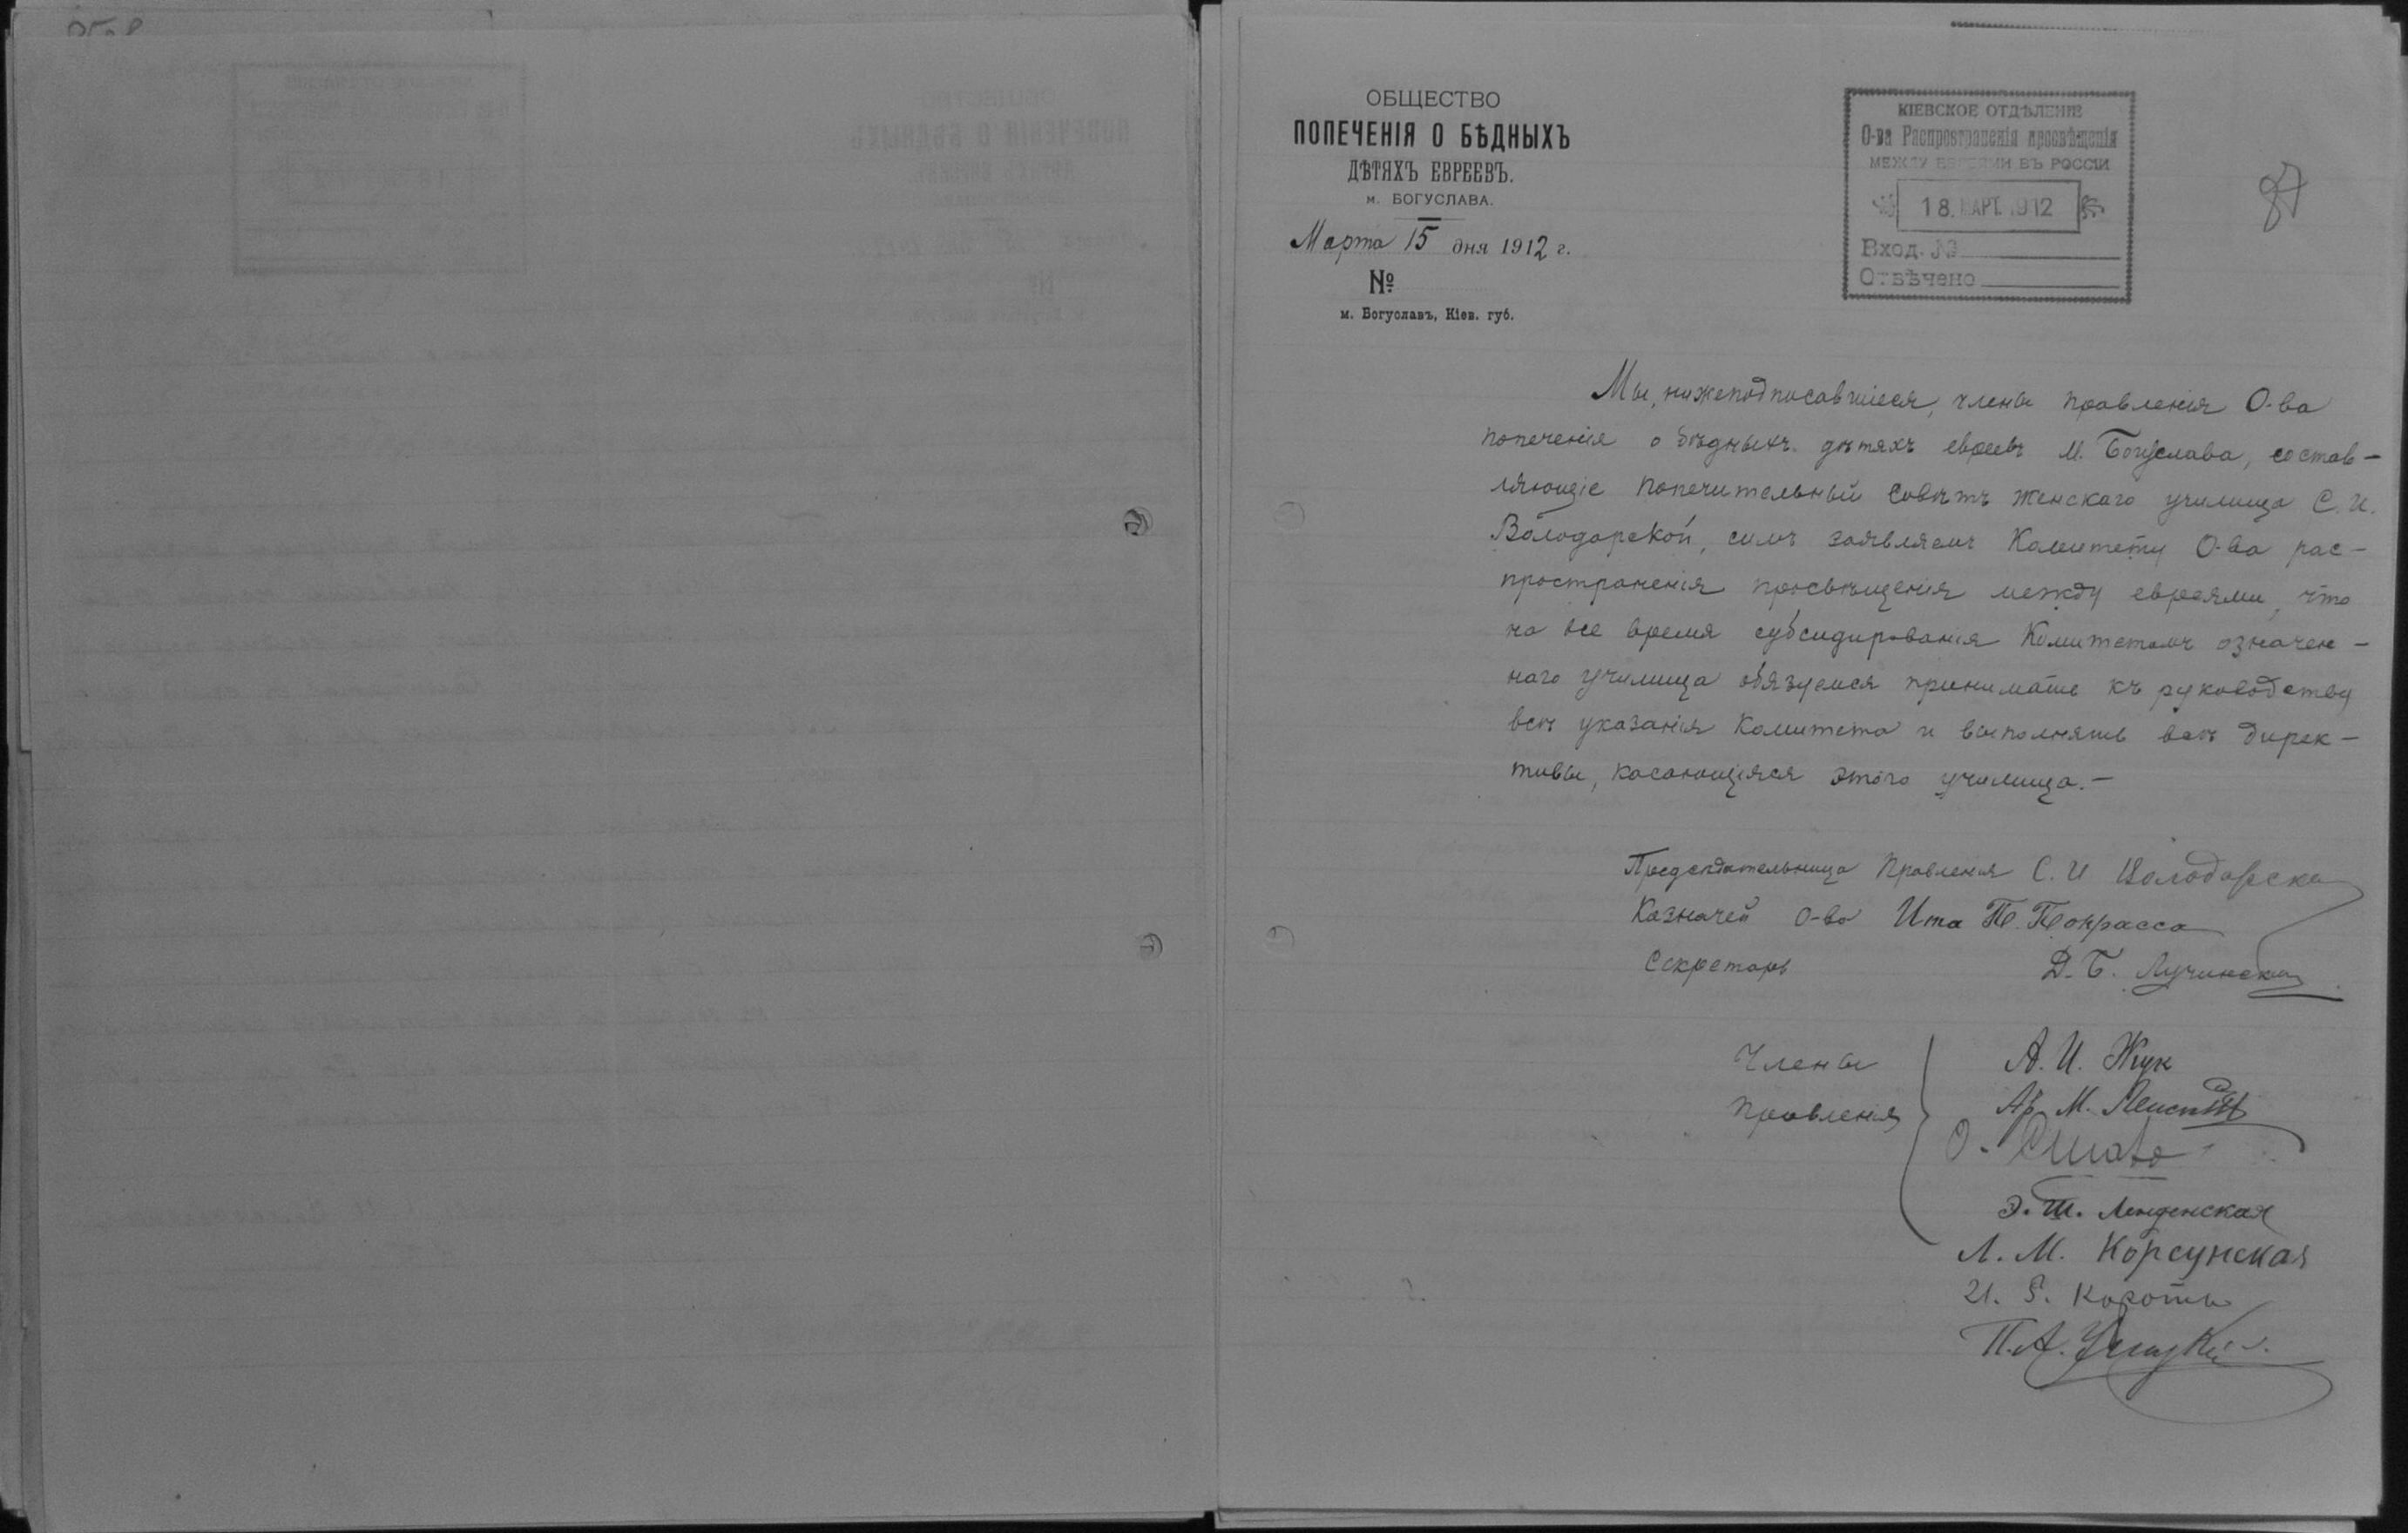 ОБЩЕСТВО
ПОПЕЧЕНІЯ О БѢДНЫХЪ
ДѢТЯХЪ ЕВРЕЕВЪ.
м. БОГУСЛАВА.
Марта 15 дня 1912 г.
№
м. Богуславъ, Кіев. губ.
КІЕВСКОЕ ОТДѢЛЕНІЕ
О-ва Распространенія просвѣщенія
МЕЖДУ ЕВРЕЯМИ ВЪ РОССІИ
18. МАРТ. 1912
Вход. №
Отвѣчено
87
Мы, нижеподписавшіеся, члены правленія О-ва
попеченія о бѣдныхъ дѣтяхъ евреевъ м. Богуслава, состав-
ляющіе попечительный совѣтъ женскаго училища С. И.
Володарской, симъ заявляемъ Комитету О-ва рас-
пространенія просвѣщенія между евреями, что
на все время субсидированія Комитетомъ означен-
наго училища обязуемся принимать къ руководству
всѣ указанія Комитета и выполнять всѣ дирек-
тивы, касающіяся этого училища.-
Предсѣдательница Правленія С. И Володарска
Казначей О-ва Ита П. Покрасса
Секретарь Д. Б. Лучинская
Члены Правленія
А. И. Жук
Ар М.
О.
Э. Ш.
Л. М. Корсунская
И. Б.
П. А.